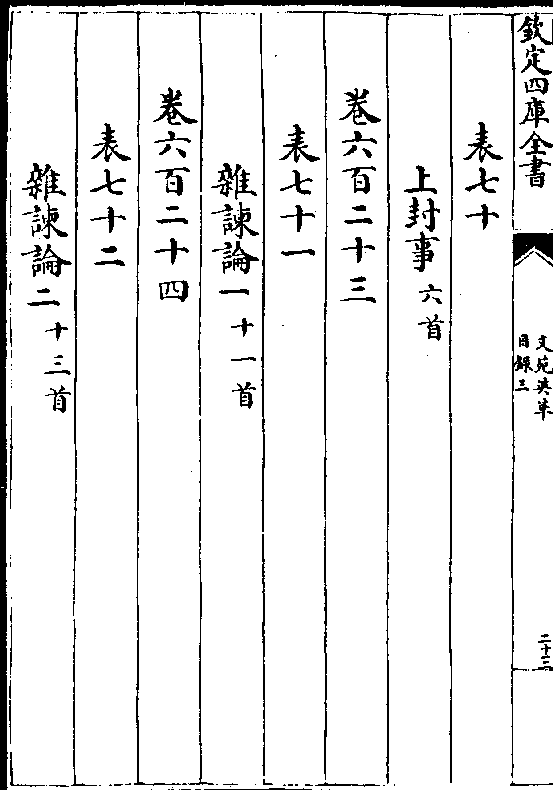 欽定四庫全書
文苑英華
目錄三
二十三
表七十
上封事六首
卷六百二十三
表七十一
雜諫論一十一首
卷六百二十四
表七十二
雜諫論二十三首